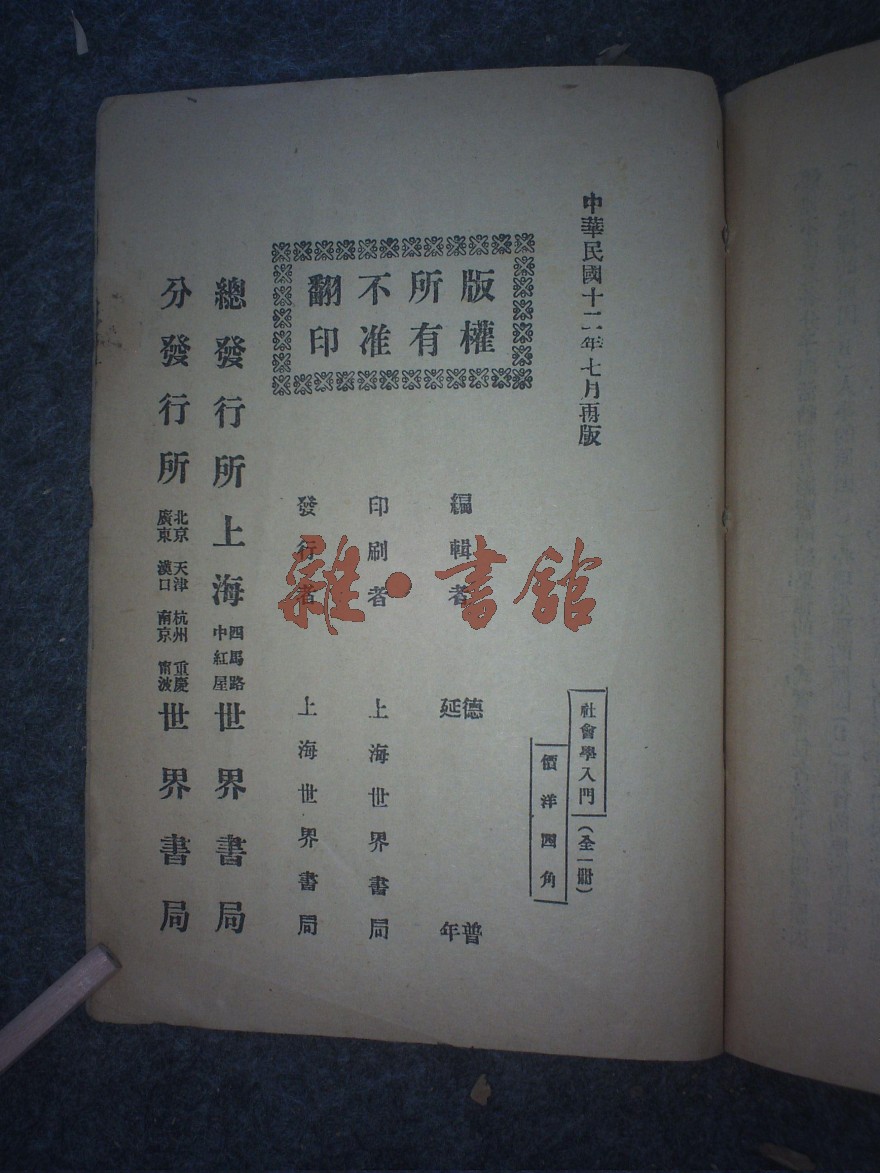 中華民國十二年七月再版
社會學入門（全一册）
價洋四角
版權
所有
不准
翻印
編輯者 德普
延年
印刷者 上海世界書局
發行者 上海世界書局
總發行所上海四馬路中紅屋世界書局
分發行所北京 天津 杭州 重慶
廣東 漢口 南京 甯波世界書局
雜·書館